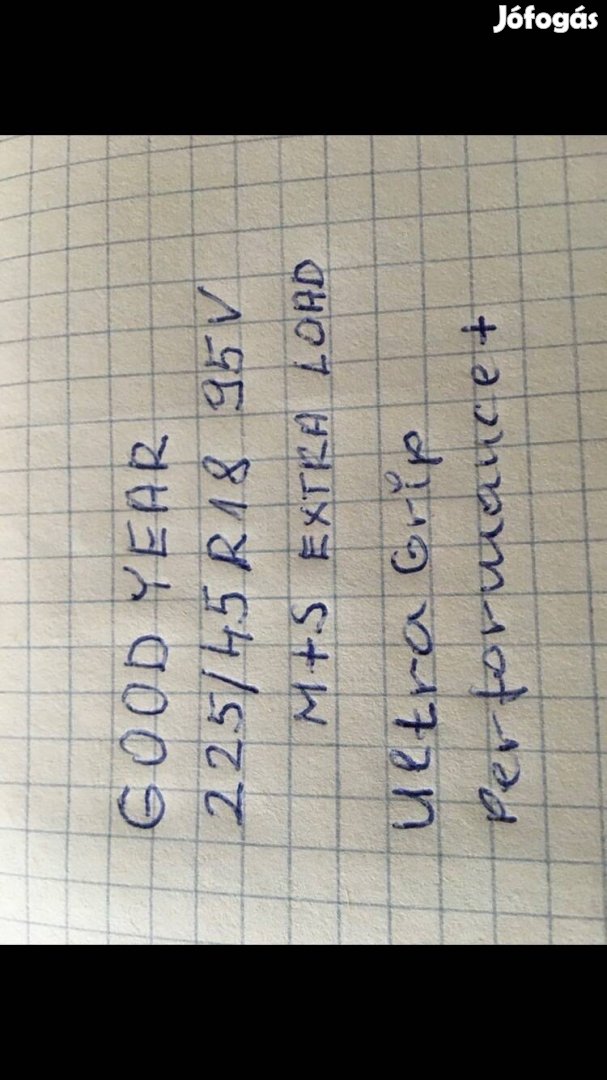 Jófogás
GOOD YEAR
225/45R18 95V
M+S EXTRA LOAD
UltraGrip
Performance+